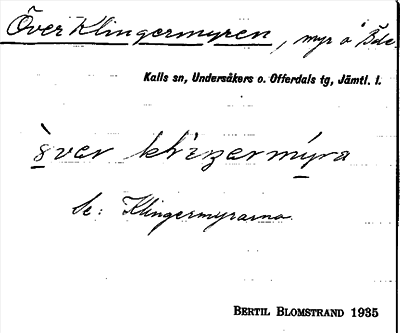 Över Klingermyren, myr å
Kalls sn, Undersåkers o. Offerdals tg, Jämtl. l.
Se: Klingermyrarna.
BERTIL BLOMSTRAND 1935